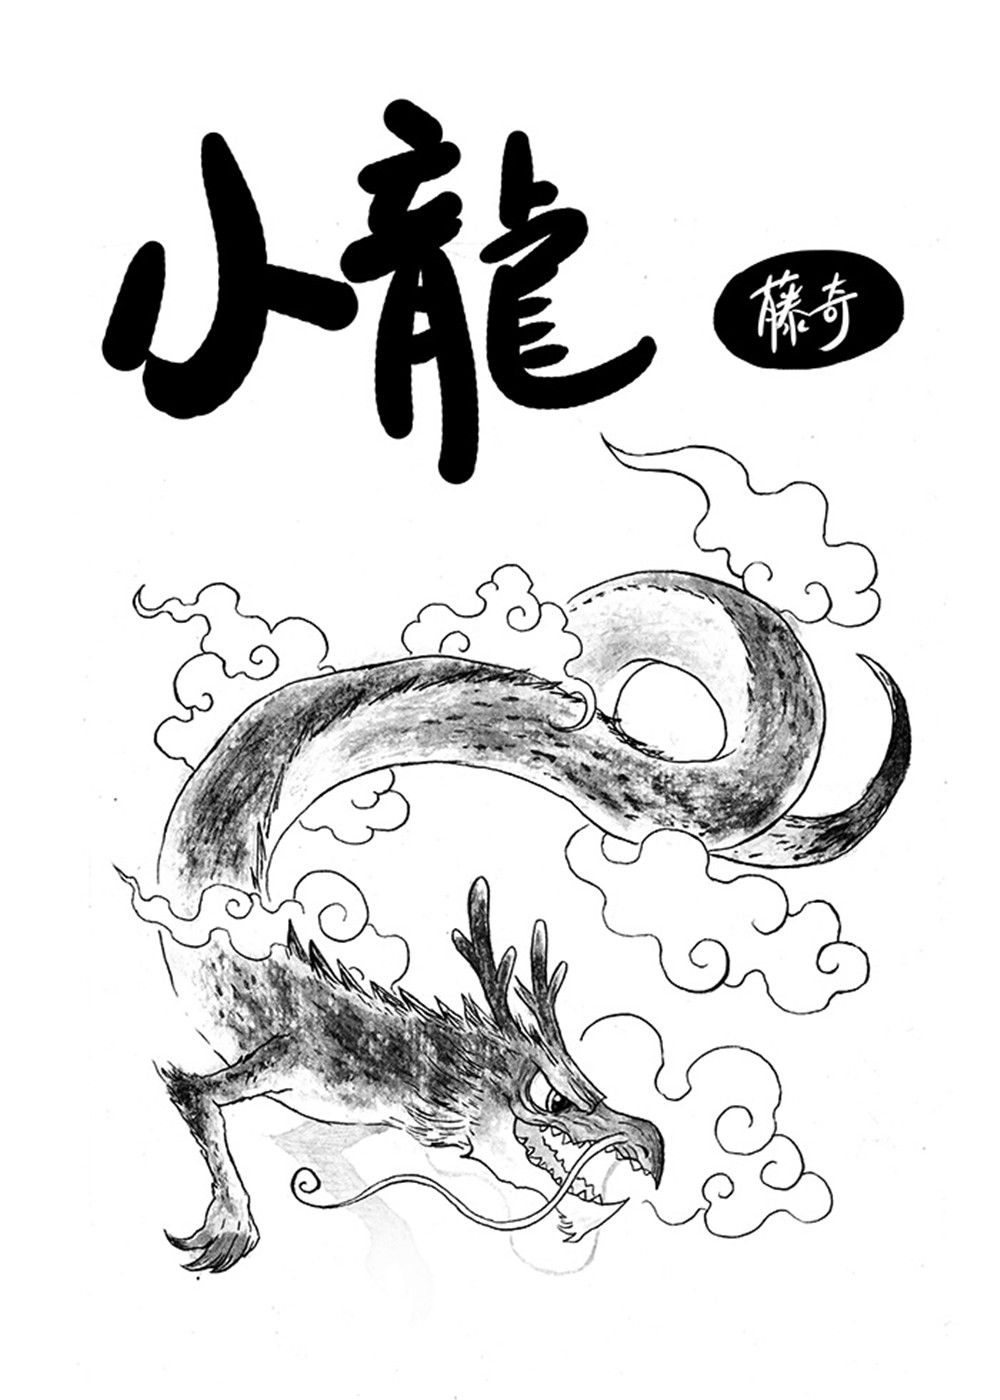 小龍
藤奇